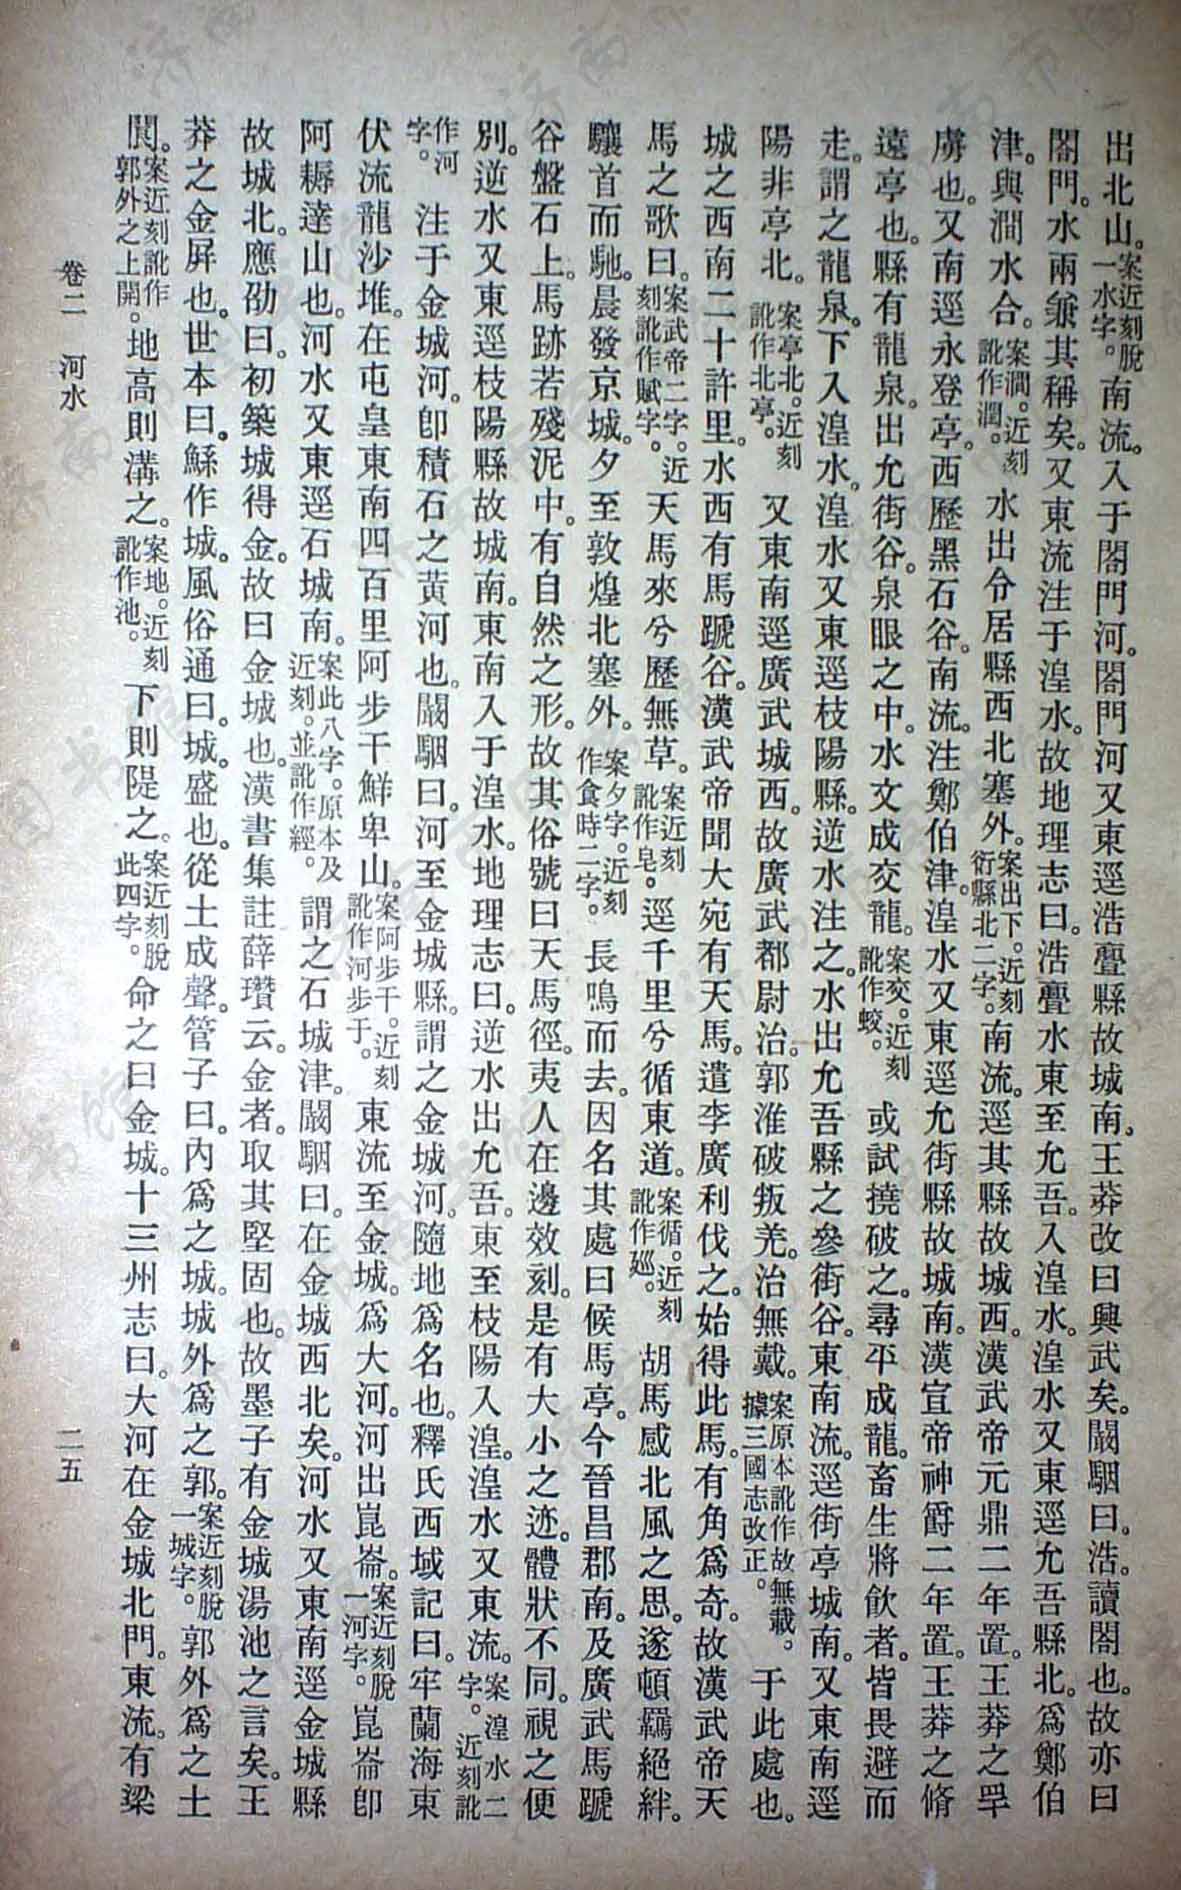 出北山。案近刻脫一水字。南流。入于閤門河。閤門河又東逕浩亹縣故城南。王莽改曰興武矣。闞駰曰。浩。讀閤也。故亦曰
閤門。水兩兼其稱矣。又東流注于湟水。故地理志曰。浩亹水東至允吾。入湟水。湟水又東逕允吾縣北。爲鄭伯
津。與澗水合。案澗。近刻訛作潤。水出令居縣西北塞外。案出下。近刻衍縣北二字。南流。逕其縣故城西。漢武帝元鼎二年置。王莽之罕
虜也。又南逕永登亭。西歷黑石谷。南流。注鄭伯津。湟水又東逕允街縣故城南。漢宣帝神爵二年置。王莽之脩
遠亭也。縣有龍泉。出允街谷。泉眼之中。水文成交龍。案交。近刻訛作蛟。或試撓破之。尋平成龍。畜生將飲者。皆畏避而
走。謂之龍泉。下入湟水。湟水又東逕枝陽縣。逆水注之。水出允吾縣之參街谷。東南流。逕街亭城南。又東南逕
陽非亭北。案亭北。近刻訛作北亭。又東南逕廣武城西。故廣武都尉治。郭淮破叛羌。治無戴。案原本訛作故無載。據三國志改正。于此處也。
城之西南二十許里。水西有馬蹏谷。漢武帝聞大宛有天馬。遣李廣利伐之。始得此馬。有角爲奇。故漢武帝天
馬之歌曰。案武帝二字。近刻訛作賦字。天馬來兮歷無草。案近刻訛作皂。逕千里兮循東道。案循。近刻訛作廵。胡馬感北風之思。遂頓羈絕絆。
驤首而馳。晨發京城。夕至敦煌北塞外。案夕字。近刻作食時二字。長鳴而去。因名其處曰候馬亭。今晉昌郡南。及廣武馬蹏
谷盤石上。馬跡若殘泥中。有自然之形。故其俗號曰天馬徑。夷人在邊效刻。是有大小之迹。體狀不同。視之便
別。逆水又東逕枝陽縣故城南。東南入于湟水。地理志曰。逆水出允吾。東至枝陽入湟。湟水又東流。案湟水二字。近刻訛
作河字。注于金城河。卽積石之黃河也。闞駰曰。河至金城縣。謂之金城河。隨地爲名也。釋氏西域記曰。牢蘭海東
伏流龍沙堆。在屯皇東南四百里阿步干鮮卑山。案阿步干。近刻訛作河步于。東流至金城。爲大河。河出崑崙。案近刻脫一河字。崑崙卽
阿耨達山也。河水又東逕石城南。案此八字。原本及近刻。並訛作經。謂之石城津。闞駰曰。在金城西北矣。河水又東南逕金城縣
故城北。應劭曰。初築城得金。故曰金城也。漢書集註薛瓚云。金者。取其堅固也。故墨子有金城湯池之言矣。王
莽之金屏也。世本曰。鯀作城。風俗通曰。城。盛也。從土成聲。管子曰。內爲之城。城外爲之郭。案近刻脫一城字。郭外爲之土
閬。案近刻訛作郭外之上開。地高則溝之。案地。近刻訛作池。下則隄之。案近刻脫此四字。命之曰金城。十三州志曰。大河在金城北門。東流。有梁
卷二 河水 二五